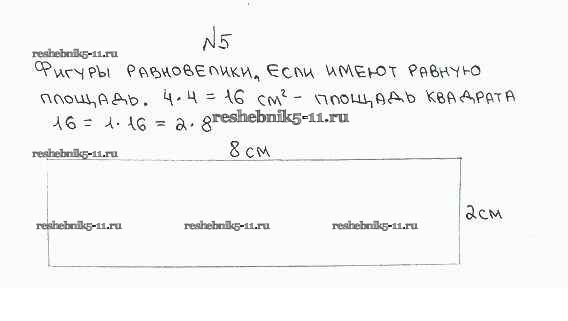 №5
reshebnik5-11.ru
Фигуры равновелики, если имеют равную
площадь. 4·4=16 см² - площадь квадрата
16 = 1·16 = 2·8
reshebnik5-11.ru
reshebnik5-11.ru
8 см
2см
reshebnik5-11.ru reshebnik5-11.ru reshebnik5-11.ru